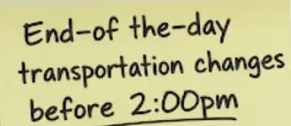 End-of the-day
transportation changes
before 2:00pm